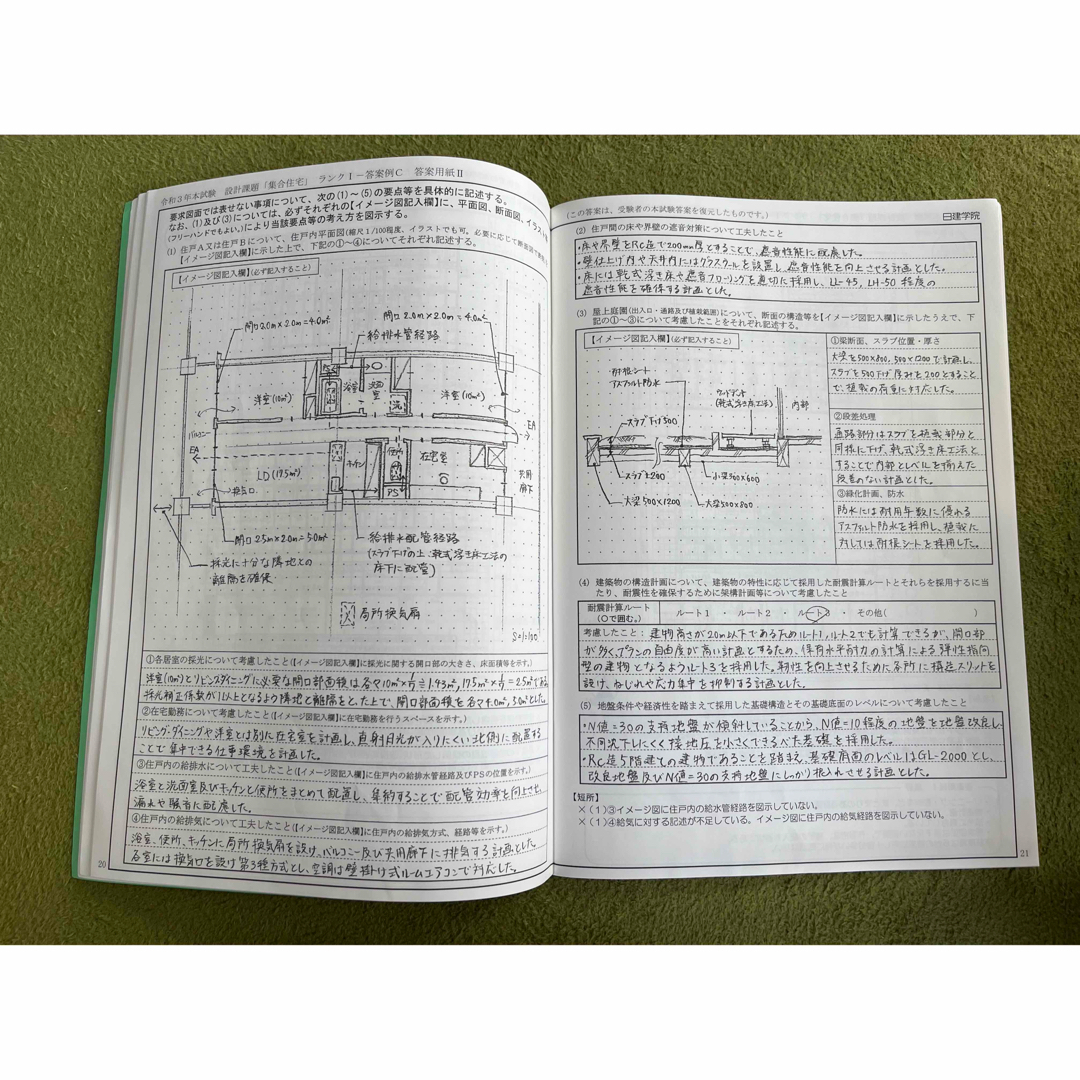 令和3年本試験 設計課題「集合住宅」 ランクⅠ－答案例C 答案用紙Ⅱ
要求図面では表せない事項について、次の(1)～(5)の要点等を具体的に記述する。
なお、(1)及び(3)については、必ずそれぞれの【イメージ図記入欄】に、平面図、断面図、イラスト
(フリーハンドでもよい。)により当該要点等の考え方を図示する。
(1) 住戸A又は住戸Bについて、住戸内平面図(縮尺1/100程度、イラストでも可。必要に応じて断面図
【イメージ図記入欄】に示した上で、下記の①～④についてそれぞれ記述する。
【イメージ図記入欄】(必ず記入すること)
開口2.0m×2.0m=4.0m²
開口2.0m×2.0m=4.0m²
給排水管経路
PS
浴室
洗面室
洗
洋室(10m²)
洋室(10m²)
バルコニー
EA
EA
LD(17.5m²)
キッチン
便所
在宅室
共用廊下
換気口
PS
開口2.5m×2.0m=5.0m²
採光に十分な隣地との
離隔を確保
給排水配管経路
(スラブ下げの上、乾式浮き床工法の
床下に配管)
局所換気扇
S=1:100
①各居室の採光について考慮したこと(【イメージ図記入欄】に採光に関する開口部の大きさ、床面積等を示す。)
洋室(10㎡)とリビングダイニングに必要な開口部面積は各々10m²×1/7≒1.43m²,17.5m²×1/7=2.5m²である
採光補正係数が1以上となるよう隣地と離隔をとった上で、開口部面積を各々4.0m²,5.0m²とした。
②在宅勤務について考慮したこと(【イメージ図記入欄】に在宅勤務を行うスペースを示す。)
リビング・ダイニングや洋室とは別に在宅室を計画し、直射日光が入りにくい北側に配置する
ことで集中できる仕事環境を計画した。
③住戸内の給排水について工夫したこと(【イメージ図記入欄】に住戸内の給排水管経路及びPSの位置を示す。)
浴室と洗面室及びキッチンと便所をまとめて配置し、集約することで配管効率を向上させ、
漏水や騒音に配慮した。
④住戸内の給排気について工夫したこと(【イメージ図記入欄】に住戸内の給排気方式、経路等を示す。)
浴室、便所、キッチンに局所換気扇を設け、バルコニー及び共用廊下に排気する計画とした。
各室には換気口を設け第3種方式とし、空調は壁掛け式ルームエアコンで対応した。
20
(この答案は、受験者の本試験答案を復元したものです。)
日建学院
(2) 住戸間の床や界壁の遮音対策について工夫したこと
・床や界壁をRC造で200mm厚とすることで、遮音性能に配慮した。
・壁仕上げ内や天井内にはグラスウールを設置し、遮音性能を向上させる計画とした。
・床には乾式浮き床や遮音フローリングを適切に採用し、LL-45, LH-50程度の
遮音性能を確保する計画とした。
(3) 屋上庭園(出入口・通路及び植栽範囲)について、断面の構造等を【イメージ図記入欄】に示したうえで、下
記の①～③について考慮したことをそれぞれ記述する。
【イメージ図記入欄】(必ず記入すること)
耐根シート
アスファルト防水
ウッドデッキ
(乾式浮き床工法)
内部
スラブ下げ500
スラブ±200
小梁300×600
大梁500×1200
大梁500×800
①梁断面、スラブ位置・厚さ
大梁を500×800, 500×1200で計画し、
スラブを500下げ厚みを200とすること
で、植栽の荷重に対応した。
②段差処理
通路部分はスラブを植栽部分と
同様に下げ、乾式浮き床工法と
することで内部とレベルを揃えた
段差のない計画とした。
③緑化計画、防水
防水には耐用年数に優れる
アスファルト防水を採用し、植栽に
対しては耐根シートを採用した。
(4) 建築物の構造計画について、建築物の特性に応じて採用した耐震計算ルートとそれらを採用するに当
たり、耐震性を確保するために架構計画等について考慮したこと
耐震計算ルート
(○で囲む。)
ルート1 ・ ルート2 ・ ルート3 ・ その他( )
考慮したこと: 建物高さが20m以下であるためルート1,ルート2でも計算できるが、開口部
が多くプランの自由度が高い計画とするため、保有水平耐力の計算による靭性指向
型の建物となるようルート3を採用した。靭性を向上させるために各所に構造スリットを
設け、ねじれや応力集中を抑制する計画とした。
(5) 地盤条件や経済性を踏まえて採用した基礎構造とその基礎底面のレベルについて考慮したこと
・N値=30の支持地盤が傾斜していることから、N値=10程度の地盤を地盤改良し、
不同沈下しにくく接地圧を小さくできるべた基礎を採用した。
・RC造5階建ての建物であることを踏まえ、基礎底面のレベルはGL-2000とし、
改良地盤及びN値=30の支持地盤にしっかり根入れさせる計画とした。
【短所】
×(1)③イメージ図に住戸内の給水管経路を図示していない。
×(1)④給気に対する記述が不足している。イメージ図に住戸内の給気経路を図示していない。
21